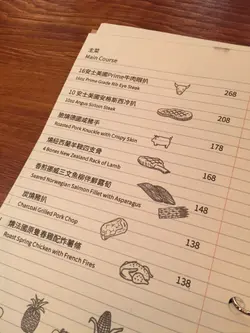 主菜
Main Course
16安士美國Prime牛肉眼扒
16oz Prime Grade Rib Eye Steak
268
10 安士美國安格斯西冷扒
10oz Angus Sirloin Steak
208
脆燒德國咸豬手
Roasted Pork Knuckle with Crispy Skin
208
燒紐西蘭羊鞍四支骨
4 Bones New Zealand Rack of Lamb
168
香煎挪威三文魚柳伴鮮露筍
Seared Norwegian Salmon Fillet with Asparagus
148
炭燒豬扒
Charcoal Grilled Pork Chop
138
燒法國原隻春雞配炸薯條
Roast Spring Chicken with French Fires
138